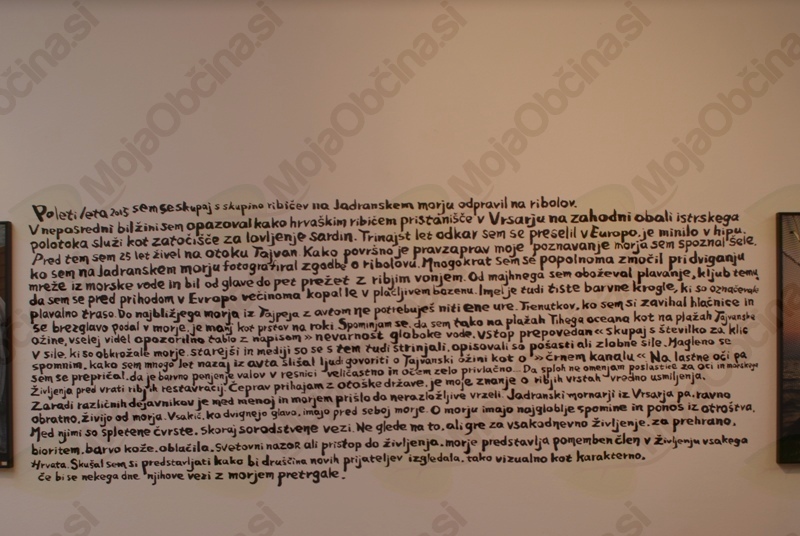 Poleti leta 2015 sem se skupaj s skupino ribičev na Jadranskem morju odpravil na ribolov.
V neposredni bližini sem opazoval kako hrvaškim ribičem pristanišče v Vrsarju na zahodni obali istrskega
polotoka služi kot zatočišče za lovljenje sardin. Trinajst let odkar sem se preselil v Evropo, je minilo v hipu.
Pred tem sem 25 let živel na otoku Tajvan Kako površno je pravzaprav moje poznavanje morja sem spoznal šele,
ko sem na Jadranskem morju fotografiral zgodbo o ribolovu. Mnogokrat sem se popolnoma zmočil pri dviganju
mreže iz morske vode in bil od glave do pet prežet z ribjim vonjem. Od majhnega sem oboževal plavanje, kljub temu
da sem se pred prihodom v Evropo večinoma kopal le v plačljivem bazenu. Imel je tudi tiste barvne krogle, ki so označevale
plavalno traso. Do najbližjega morja iz Tajpeja z avtom ne potrebuješ niti ene ure. Trenutkov, ko sem si zavihal hlačnice in
se brezglavo podal v morje, je manj kot prstov na roki. Spominjam se, da sem tako na plažah Tihega oceana kot na plažah Tajvanske
ožine, vselej videl opozorilno tablo z napisom » nevarnost globoke vode, vstop prepovedan « skupaj s številko za klic
v sile, ki so obkrožale morje, starejši in mediji so se s tem tudi strinjali, opisovali so pošasti ali zlobne sile. Megleno se
spomnim, kako sem mnogo let nazaj iz avta slišal ljudi govoriti o Tajvanski ožini kot o » črnem kanalu « Na lastne oči pa
sem se prepričal, da je barvno ponjenje valov v resnici veličastno in očem zelo privlačno... Da sploh ne omenjam poslastice za oči in morskega
življenja pred vrati ribjih restavracij. Čeprav prihajam z otoške države, je moje znanje o ribjih vrstah vredno usmiljenja.
Zaradi različnih dejavnikov je med menoj in morjem prišlo do nerazložljive vrzeli. Jadranski mornarji iz Vrsarja pa, ravno
obratno, živijo od morja. Vsakič, ko dvignejo glavo, imajo pred seboj morje. O morju imajo najgloblje spomine in ponos iz otroštva.
Med njimi so spletene čvrste, skoraj sorodstvene vezi. Ne glede na to, ali gre za vsakodnevno življenje, za prehrano,
bioritem, barvo kože, oblačila, svetovni nazor ali pristop do življenja, morje predstavlja pomemben člen v življenju vsakega
Hrvata. Skušal sem si predstavljati kako bi druščina novih prijateljev izgledala, tako vizualno kot karakterno,
če bi se nekega dne njihove vezi z morjem pretrgale.
MojaObčina.si